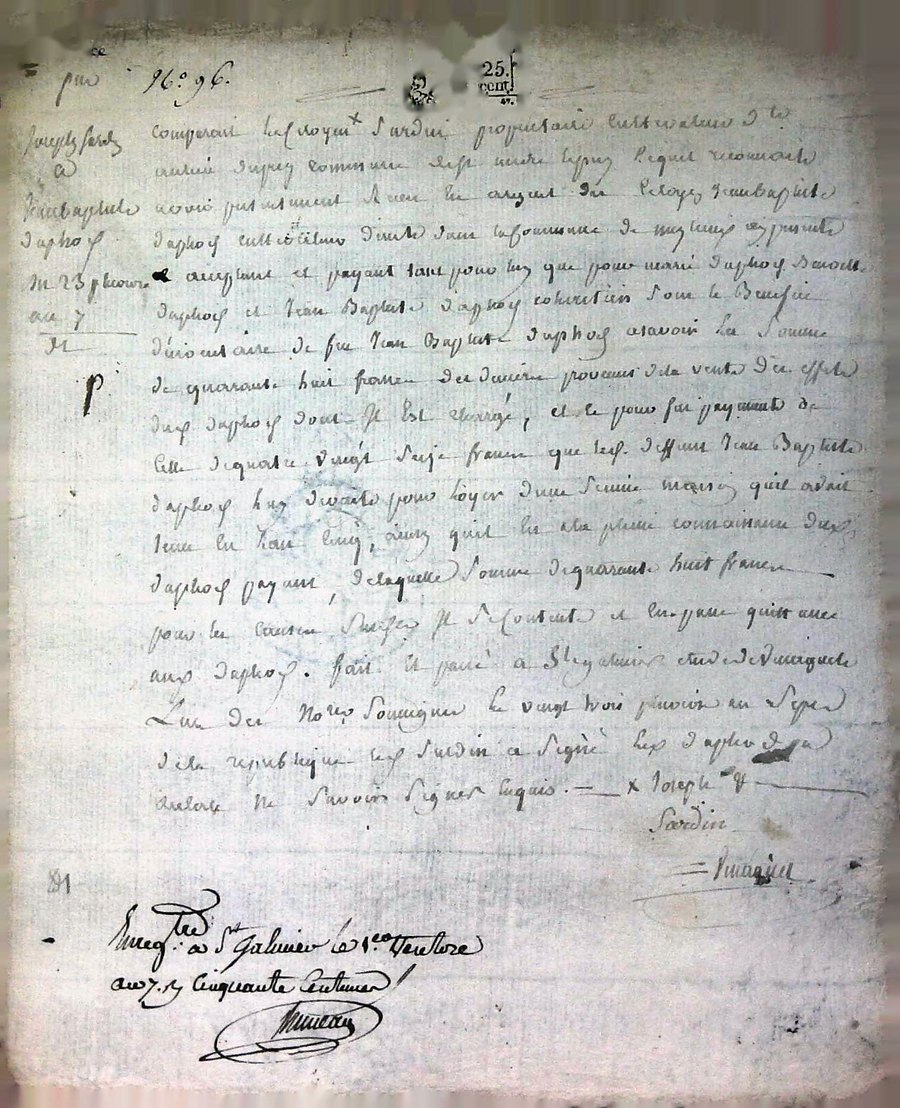 N.° 96.
25.
cent.
Joseph Sardin
a
Jean Baptiste
daphos
du 23 pluviose
an 7
comparait le Citoyen x Sardin propriétaire cultivateur
commune de st andré lequel reconnait
avoir presentement Receu en argent du Citoyen Jean Baptiste
daphos cultivateur dans la Commune de present
acceptant et payant tant pour luy que pour marie daphos Benoitte
daphos et Jean Baptiste daphos cohéritiers Sous le Benefice
d'inventaire de feu Jean Baptiste daphos a savoir la Somme
de quarante huit francs des deniers provenus de la vente des effets
dud. daphos dont Il Est chargé, et ce pour fin payment de
Celle de quatre vingt Seize francs que led. deffunt Jean Baptiste
daphos luy devoit pour loyer d'une maison qu'il avait
tenu en l'an Cinq, ainsy qu'il est a la pleine connaissance dud.
daphos payant, de laquelle Somme de quarante huit francs
pour les causes Il Se Contente et En passe quittance
aux daphos. fait Et passé a St galmier etude de Vinagniet
L'un des Nores Soussignes le vingt trois pluviose an Sept
de la republique led Sardin a Signé Led daphos
declaré Ne Savoir Signer Enquis. — x Joseph
Sardin
Enregtré a St Galmier le 1er Ventose
an 7. R. Cinquante Centimes